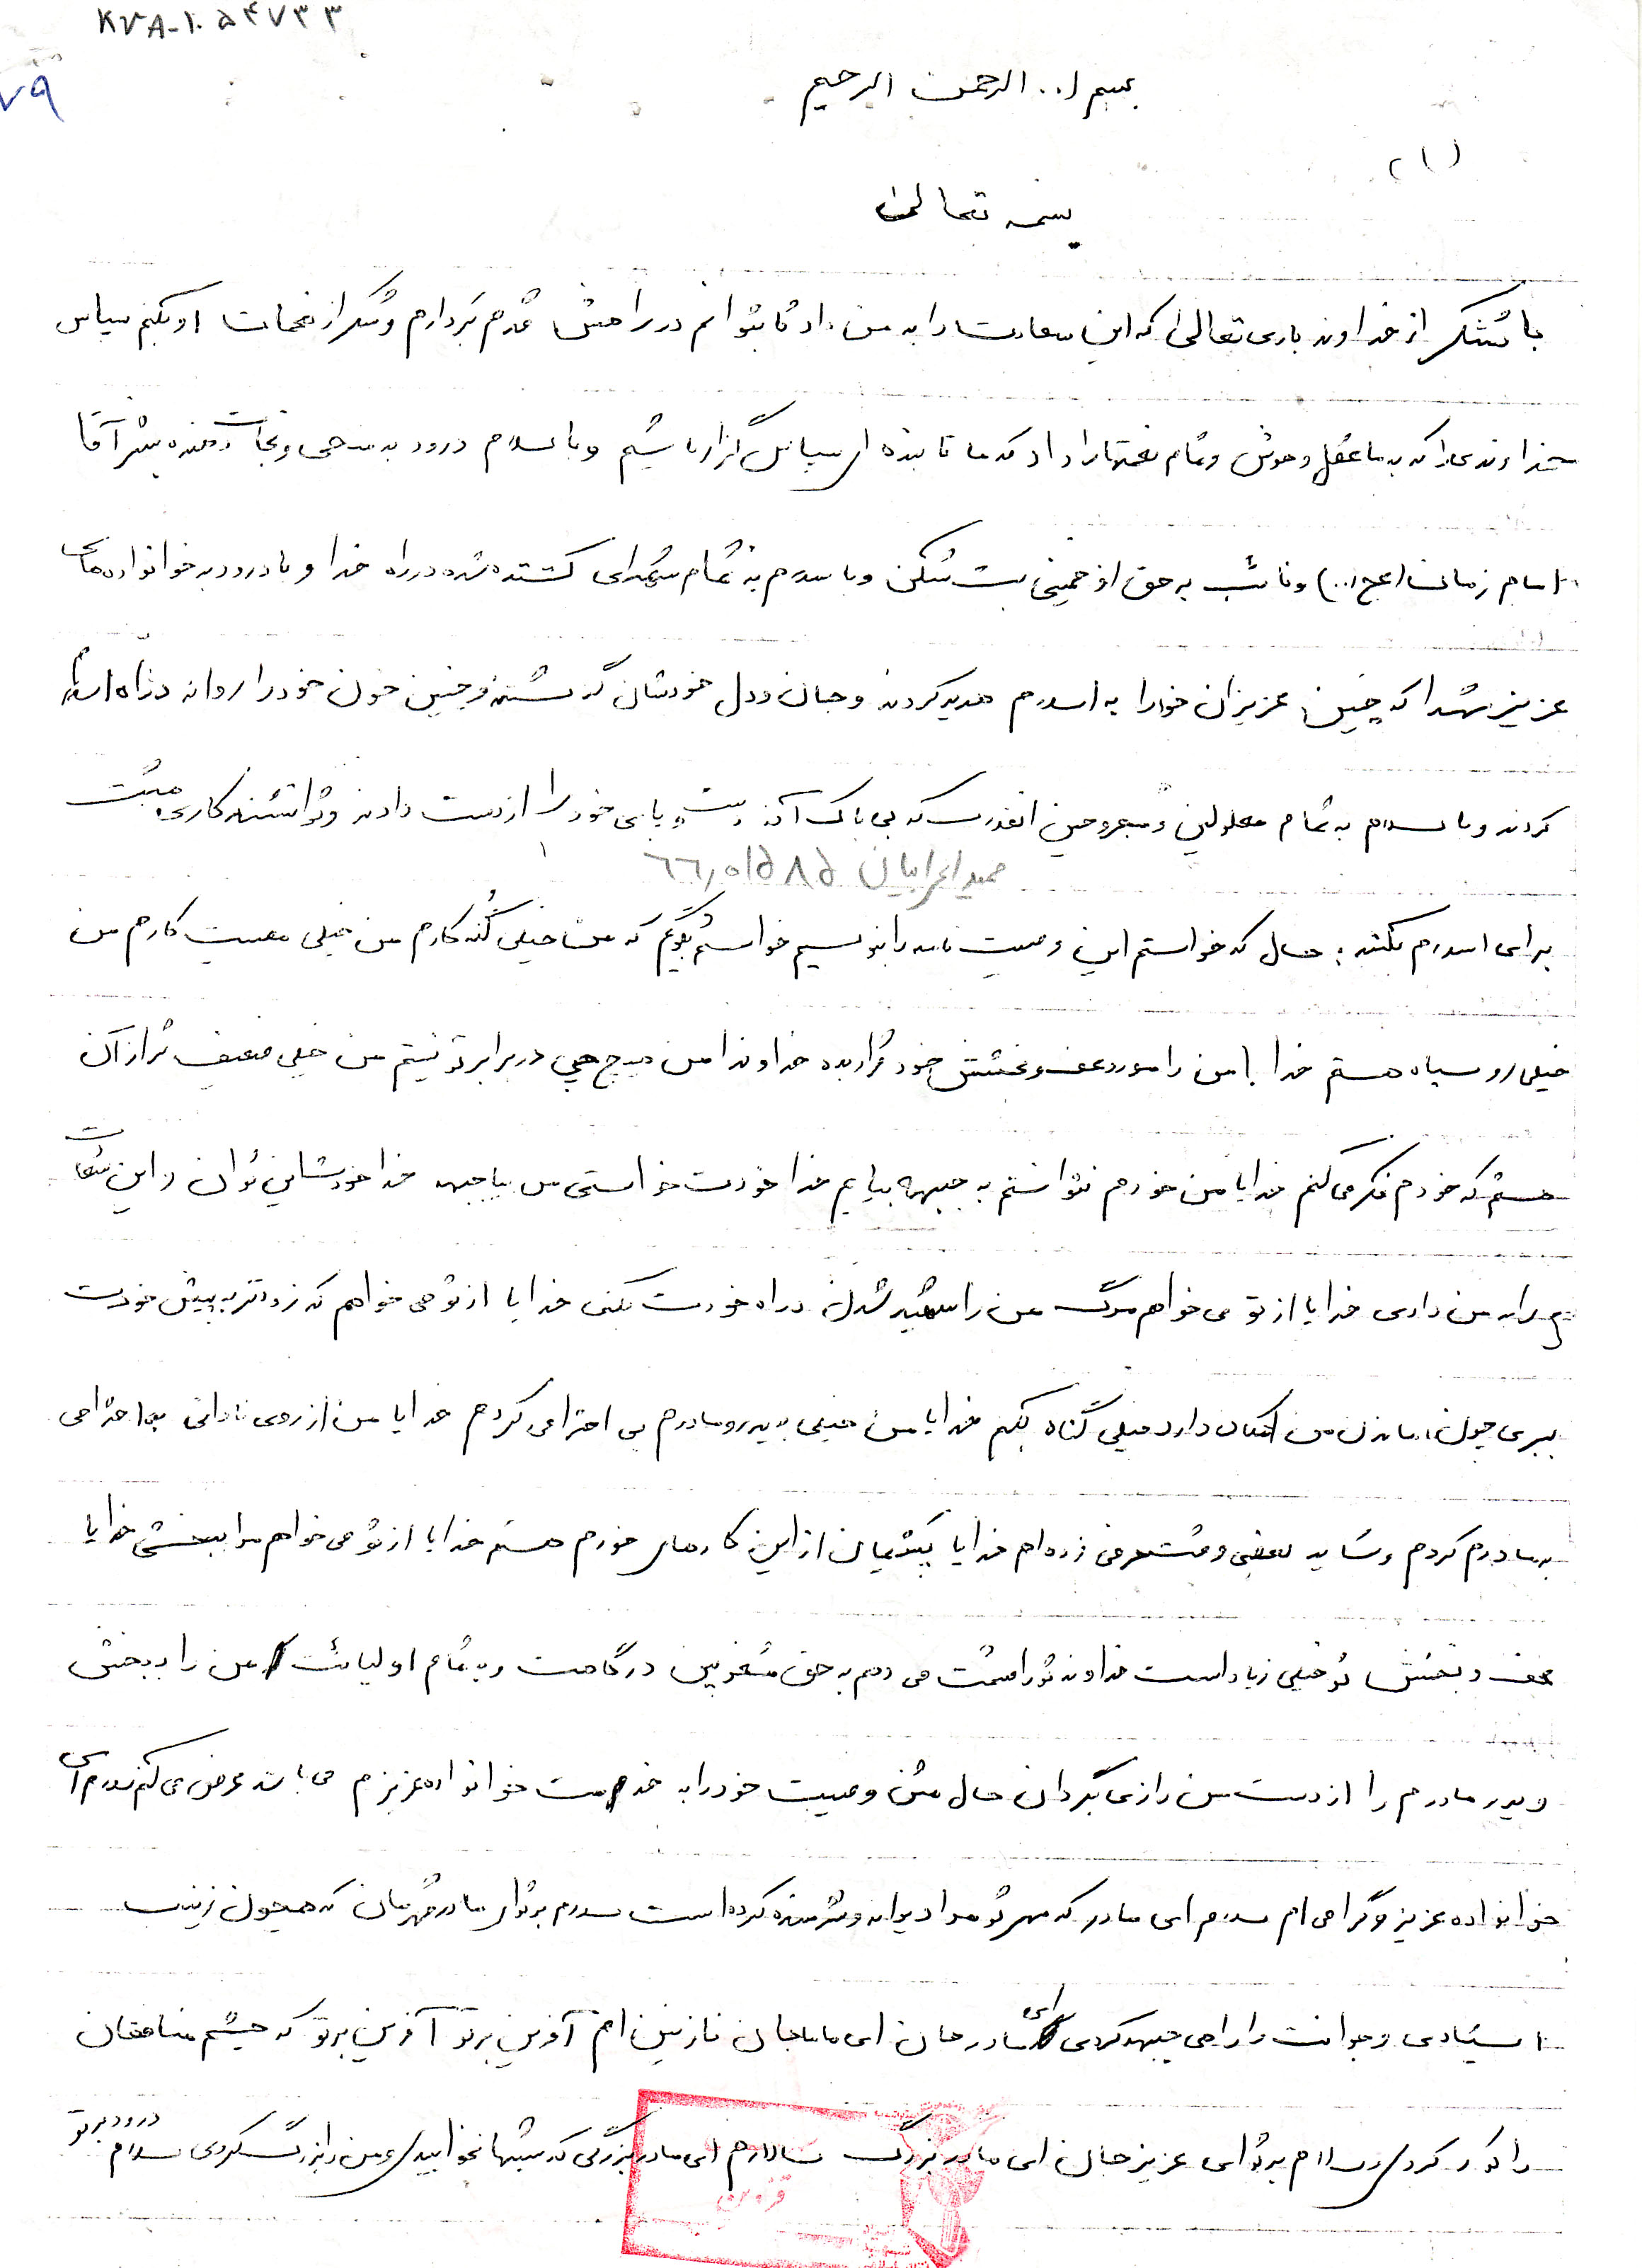 KVA-۱۰۵۴۷۳۳
۷۹
بسم ا.. الرحمن الرحیم
(۱)
بسمه تعالی
با تشکر از خداوند باری تعالی که این سعادت را به من داد تا بتوانم در راهش قدم بردارم و شکر از نعمات او بکنم سپاس
خداوندی را که به ما عقل و هوش و تمام نعمتها را داد که ما تا بنده ای سپاس گزار باشیم و با سلام درود به مهدی و نجات دهنده بشر آقا
امام زمان (عج..) و نائب به حق او خمینی بت شکن و با سلام به تمام شهدای کشته شده در راه خدا و با درود به خانواده های
عزیز شهدا که چنین عزیزان خود را به اسلام هدیه کردند و جان و دل خودشان گذشتند و چنین خون خود را روانه در راه اسلام
کردند و با سلام به تمام معلولین و مجروحین انقدر که بی باک آن دست و پای خود را از دست دادند و توانستند کاری مثبت
حمید اعرابیان ۶۶,۰۱۵۸۵
برای اسلام بکنند: حال که خواستم این وصیت نامه را بنویسم خواستم بگویم که من خیلی گنه کارم من خیلی معصیت کارم من
خیلی رو سیاه هستم خدا یا من را مورد عفو و بخشش خود قرار بده خداوندا من هیچ چی در برابر تو نیستم من خیلی ضعیف تر از آن
هستم که خودم فکر می کنم خدایا من خودم نتوانستم به جبهه بیایم خدا خودت خواستی من بیا جبهه خدا خودت این توان و این سعادت
را به من دادی خدایا از تو می خواهم مرگ من را شهید شدن در راه خودت بکنی خدایا از تو می خواهم که زودتر به پیش خودت
ببری چون ماندن من امکان دارد خیلی گناه بکنم خدایا من خیلی به پدر و مادرم بی احترامی کردم خدایا من از روی نادانی بی احترامی
به مادرم کردم و شاید بعضی وقت حرفی زده ام خدایا پشیمان از این کارهای خودم هستم خدایا از تو می خواهم مرا ببخشی خدایا
عفو و بخشش تو خیلی زیاد است خداوند تو را قسمت می دهم به حق مقربین درگاهت و به تمام اولیائت من را ببخش
و پدر مادرم را از دست من راضی بگردان حال متن وصیت خود را به خدمت خوانواده عزیزم می باشد عرض می کنم سلام ای
خوانواده عزیز و گرامی ام سلام ای مادر که مهر تو مرا دیوانه و شرمنده کرده است سلام بر تو ای مادر قهرمان که همچون زینب
ایستادی و جوانت را راهی جبهه کردی ای مادر جان ای ماماجان نازنین ام آفرین بر تو آفرین بر تو که چشم منافقان
را کور کردی سلام بر تو ای عزیز جان ای مادر بزرگ سالارم ای مادر بزرگی که شبها نخوابیدی و من را بزرگ کردی سلام درود بر تو
قزوین